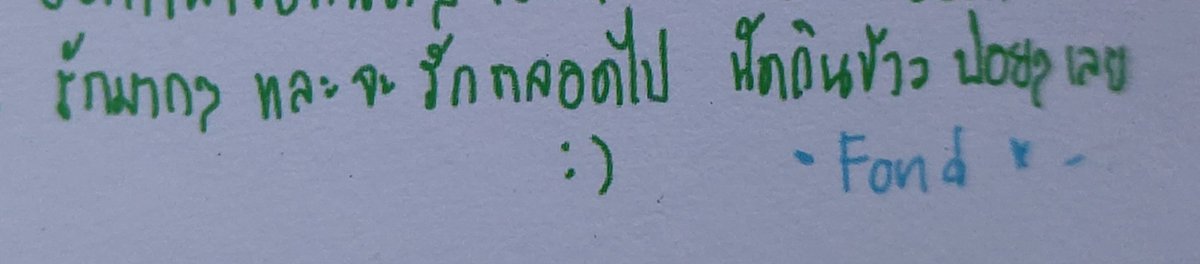 รักมากๆ และ จะ รัก ตลอดไป นัดกินข้าว บ่อยๆ เลย
:)
- Fond * -